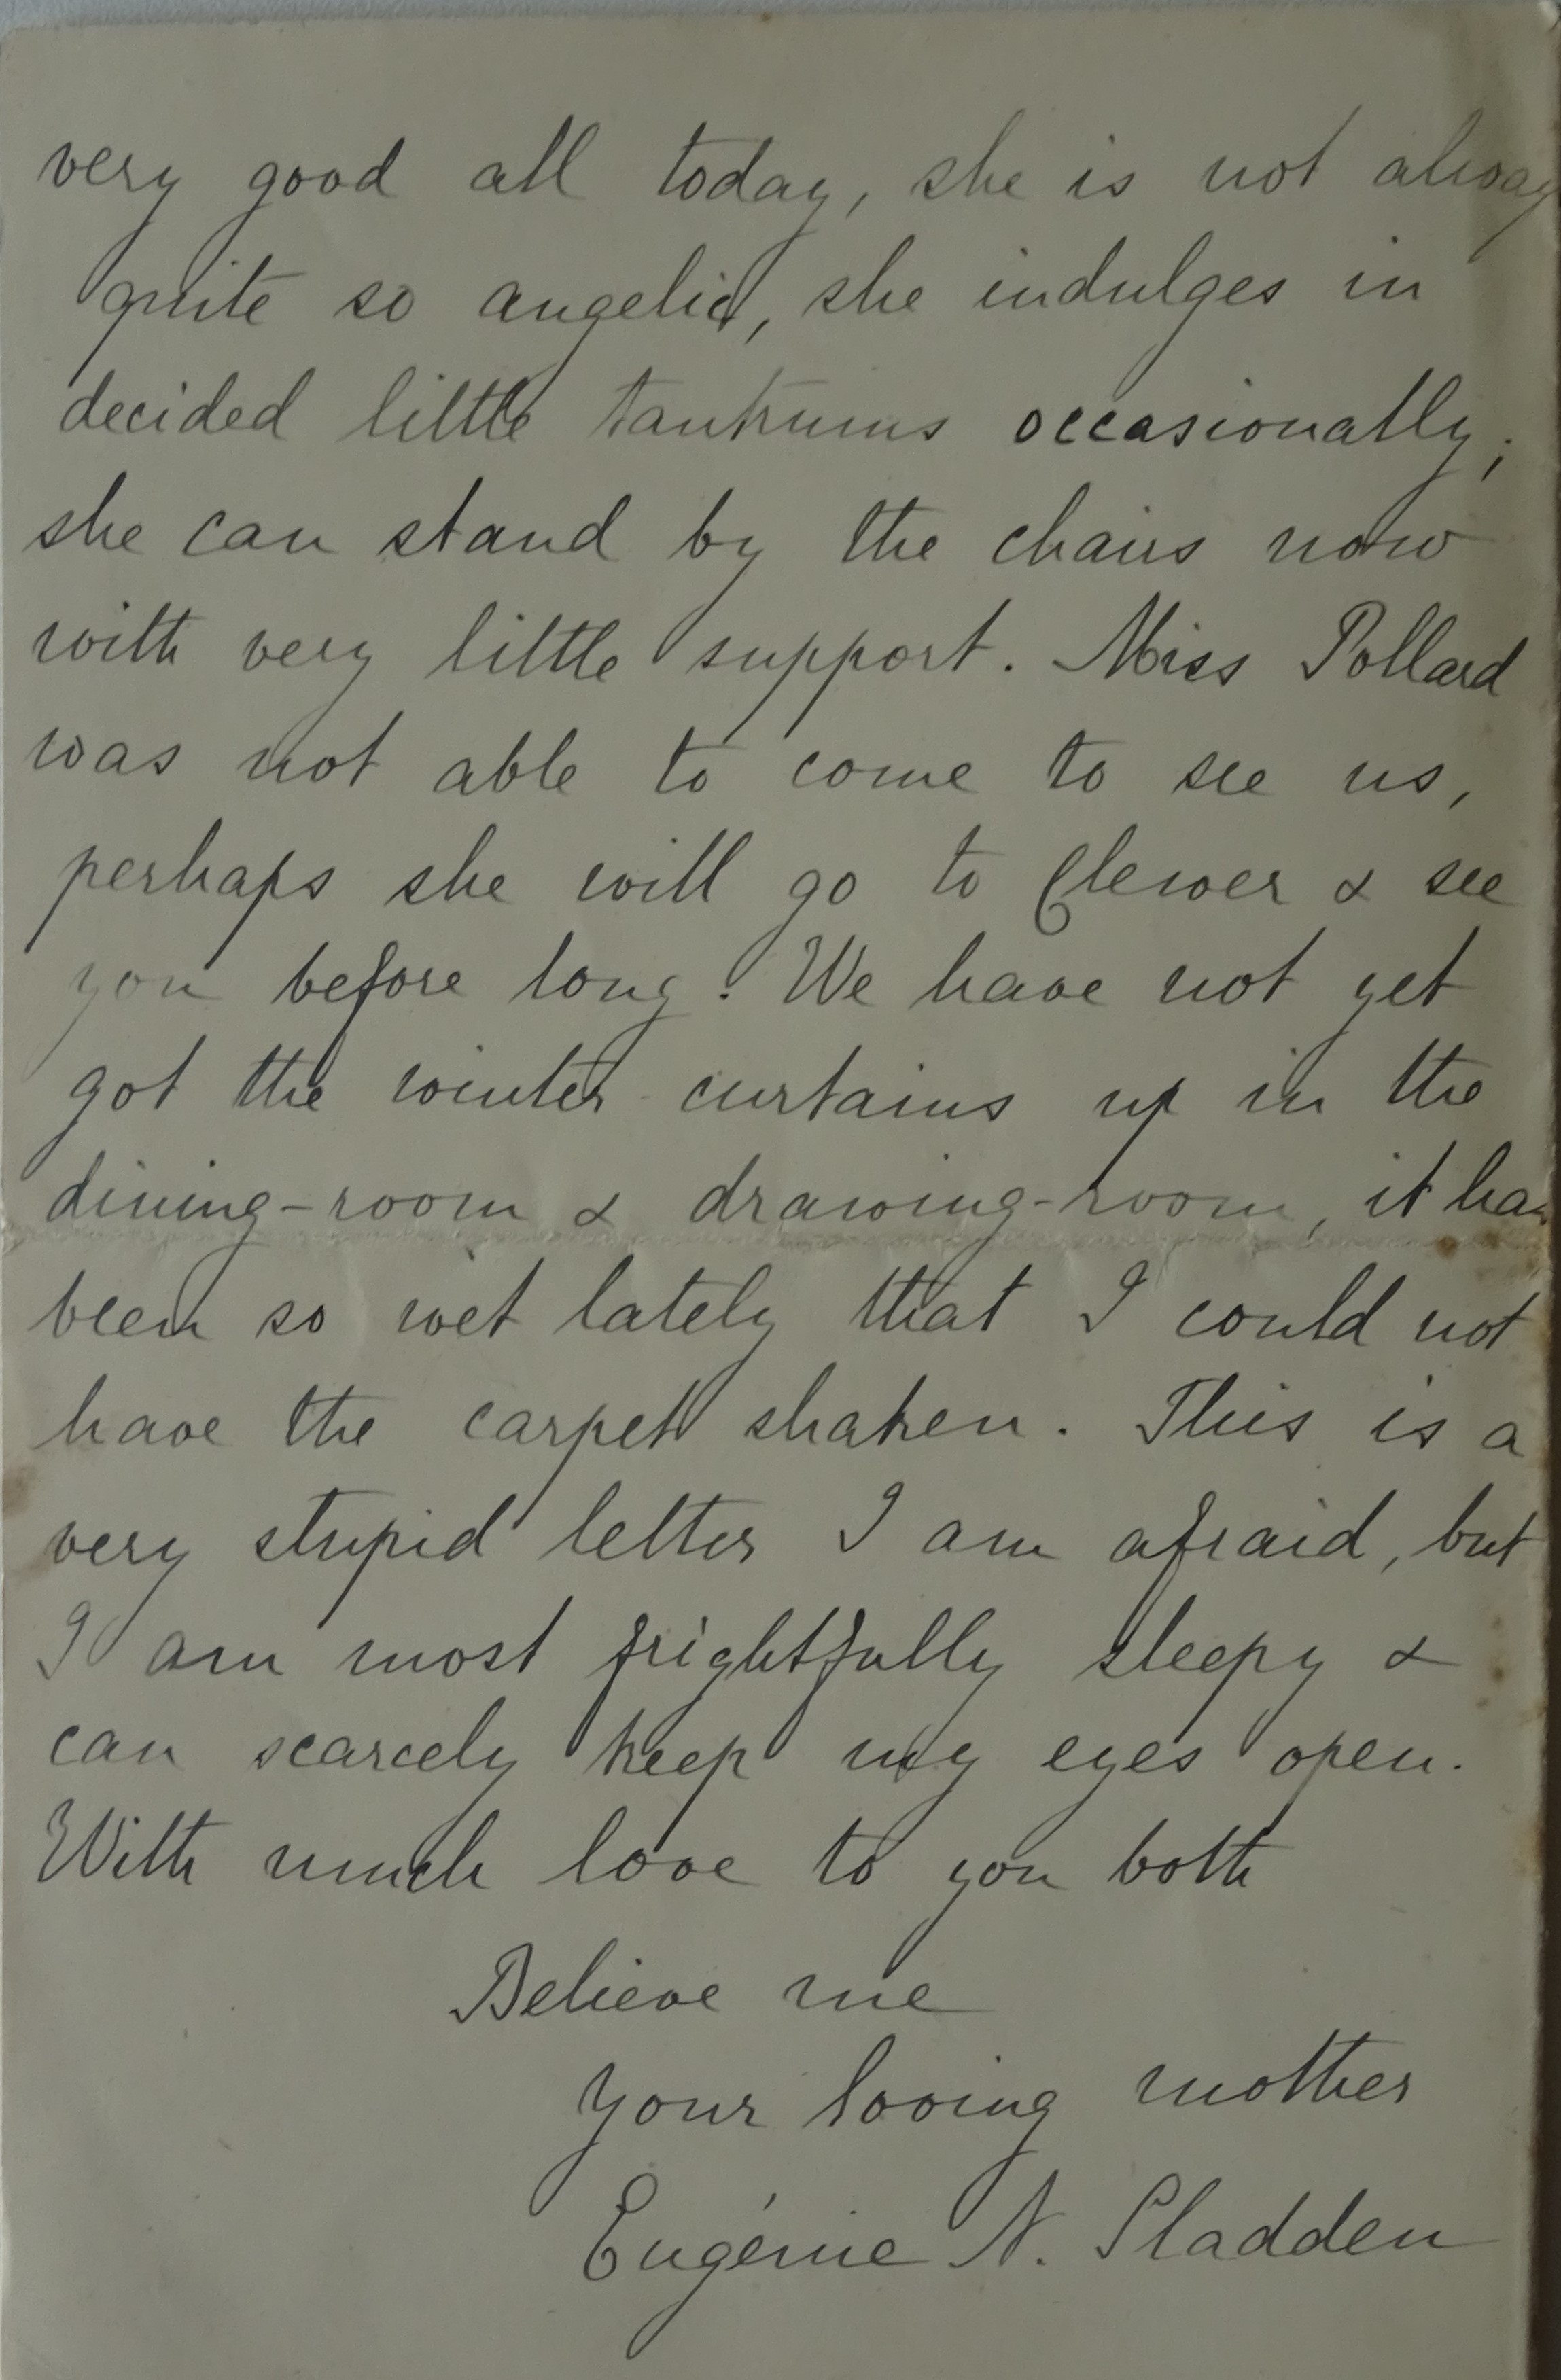 very good all today, she is not alway
quite so angelic, she indulges in
decided little tantrums occasionally;
she can stand by the chairs now
with very little support. Miss Pollard
was not able to come to see us,
perhaps she will go to Clewer & see
you before long. We have not yet
got the winter curtains up in the
dining-room & drawing-room, it has
been so wet lately that I could not
have the carpet shaken. This is a
very stupid letter I am afraid, but
I am most frightfully sleepy &
can scarcely keep my eyes open.
With much love to you both
Believe me
Your loving mother
Eugénie N. Sladden